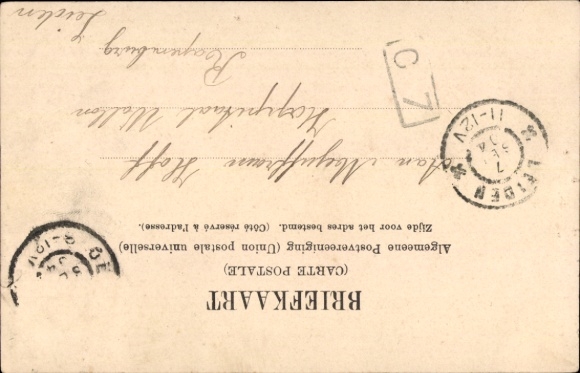 BRIEFKAART
(CARTE POSTALE)
Algemeene Postvereeniging (Union postale universelle)
Zijde voor het adres bestemd. (Côté réservé à l'adresse).
Aan Mejuffrouw Hoff
Hospitaal Wallon
Rapenburg
Leiden
C 7
LEIDEN
7 SEP 04
11-12V